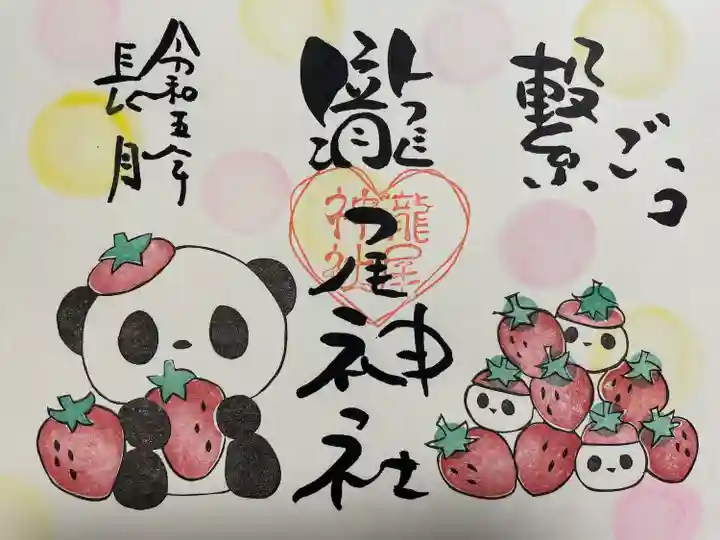 繋
瀧尾神社
龍尾
神社
令和五年
長月